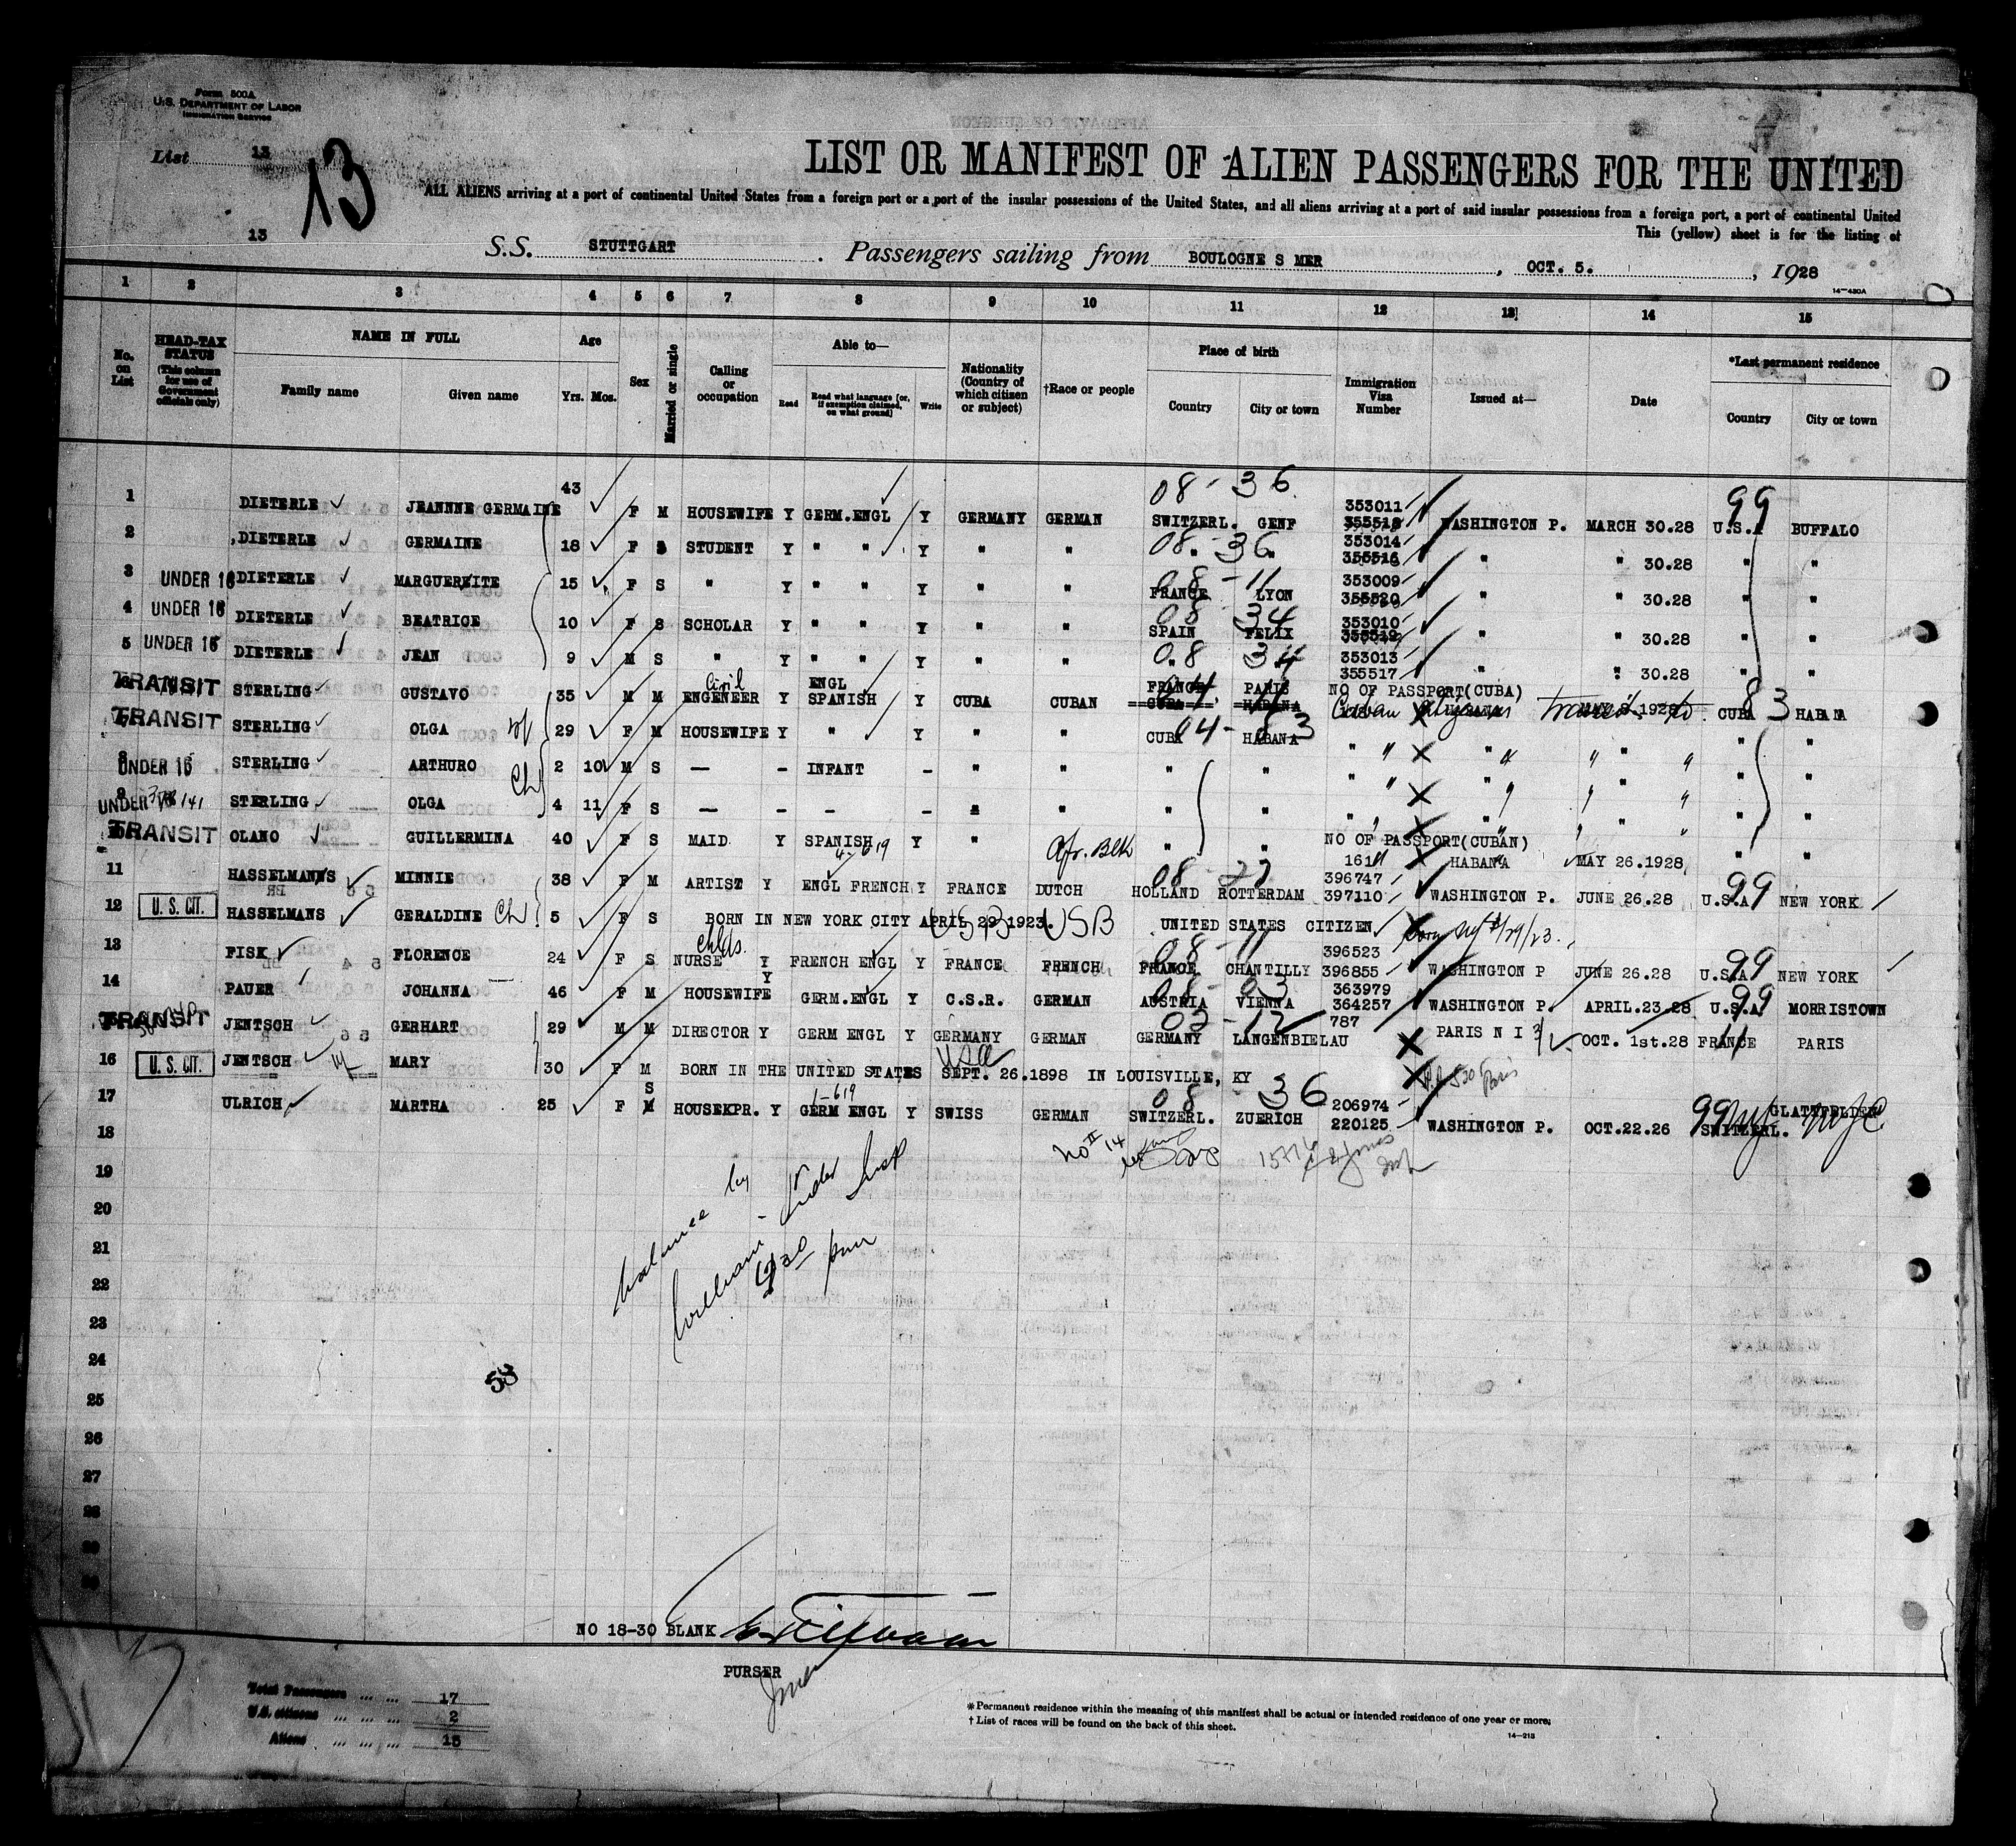 Form 500A
U.S. DEPARTMENT OF LABOR
IMMIGRATION SERVICE
List 13
13
13
LIST OR MANIFEST OF ALIEN PASSENGERS FOR THE UNITED
ALL ALIENS arriving at a port of continental United States from a foreign port or a port of the insular possessions of the United States, and all aliens arriving at a port of said insular possessions from a foreign port, a port of continental United
This (yellow) sheet is for the listing of
S.S. STUTTGART. Passengers sailing from BOULOGNE S MER, OCT. 5., 1928
14-430A
1 2 3 4 5 6 7 8 9 10 11 12 13 14 15
No. on List
HEAD-TAX STATUS (This column for use of Government officials only)
NAME IN FULL
Family name Given name
Age
Yrs. Mos.
Sex
Married or single
Calling or occupation
Able to—
Read Read what language [or, if exemption claimed, on what ground] Write
Nationality (Country of which citizen or subject)
†Race or people
Place of birth
Country City or town
Immigration Visa Number
Issued at—
Date
*Last permanent residence
Country City or town
08-36
1 DIETERLE JEANNNE GERMAINE 43 F M HOUSEWIFE Y GERM.ENGL Y GERMANY GERMAN SWITZERL. GENF 353011 WASHINGTON P. MARCH 30.28 U.S.A 99 BUFFALO
2 DIETERLE GERMAINE 18 F S STUDENT Y " " Y " " 08-36 " " 353014 355516 " " 30.28 " "
3 UNDER 16 DIETERLE MARGUEREITE 15 F S " Y " " Y " " 08-11 FRANCE LYON 353009 355520 " " 30.28 " "
4 UNDER 16 DIETERLE BEATRICE 10 F S SCHOLAR Y " " Y " " 08 34 SPAIN FELIX 353010 355519 " " 30.28 " "
5 UNDER 16 DIETERLE JEAN 9 M S " Y " " Y " " 08 34 353013 355517 " " 30.28 " "
TRANSIT STERLING GUSTAVO 35 M M Civil ENGENEER Y ENGL SPANISH Y CUBA CUBAN FRANCE PARIS CUBA HABANA NO OF PASSPORT(CUBA) Transit to CUBA 83 HABANA
TRANSIT STERLING OLGA wf 29 F M HOUSEWIFE Y " Y " " CUBA 04-83 HABANA " " " " " "
8 UNDER 16 STERLING ARTHURO Ch 2 10 M S — - INFANT - " " " " " " " " " "
9 UNDER 16 STERLING OLGA 4 11 F S — - - - " " " " " " " " " "
TRANSIT OLANO GUILLERMINA 40 F S MAID Y SPANISH Y " Afr. Blk " " NO OF PASSPORT(CUBAN) HABANA MAY 26.1928 " "
4-619
11 HASSELMANNS MINNIE 38 F M ARTIST Y ENGL FRENCH Y FRANCE DUTCH 08-27 HOLLAND ROTTERDAM 396747 397110 WASHINGTON P. JUNE 26.28 U.S.A 99 NEW YORK
12 U. S. CIT. HASSELMANS GERALDINE Ch 5 F S BORN IN NEW YORK CITY APRIL 29 1923. USB UNITED STATES CITIZEN
13 FISK FLORENCE 24 F S childs NURSE Y FRENCH ENGL Y FRANCE FRENCH 08-11 FRANCE CHANTILLY 396523 396855 WASHINGTON P JUNE 26.28 U.S.A 99 NEW YORK
14 PAUER JOHANNA 46 F M HOUSEWIFE Y GERM.ENGL Y C.S.R. GERMAN 08-03 AUSTRIA VIENNA 363979 364257 WASHINGTON P. APRIL.23.28 U.S.A. 99 MORRISTOWN
TRANSIT JENTSCH GERHART 29 M M DIRECTOR Y GERM ENGL Y GERMANY GERMAN 02-12 GERMANY LANGENBIELAU 787 PARIS N I OCT. 1st.28 FRANCE 11 PARIS
16 U. S. CIT. JENTSCH wf MARY 30 F M BORN IN THE UNITED STATES USA SEPT. 26.1898 IN LOUISVILLE, KY Paris
17 ULRICH MARTHA 25 F S M HOUSEKPR. Y 1-619 GERM ENGL Y SWISS GERMAN 08 36 SWITZERL. ZUERICH 206974 220125 WASHINGTON P. OCT.22.26 99 SWITZERL. GLATTFELDEN NYC
18
19
20
21
22
23
24
25
26
27
28
balance by
William - Under Insp
12 30 pm
58
NO 18-30 BLANK
PURSER
Total Passengers ... ... 17
U.S. citizens ... ... ... 2
Aliens ... ... ... 15
* Permanent residence within the meaning of this manifest shall be actual or intended residence of one year or more.
† List of races will be found on the back of this sheet.
14-213